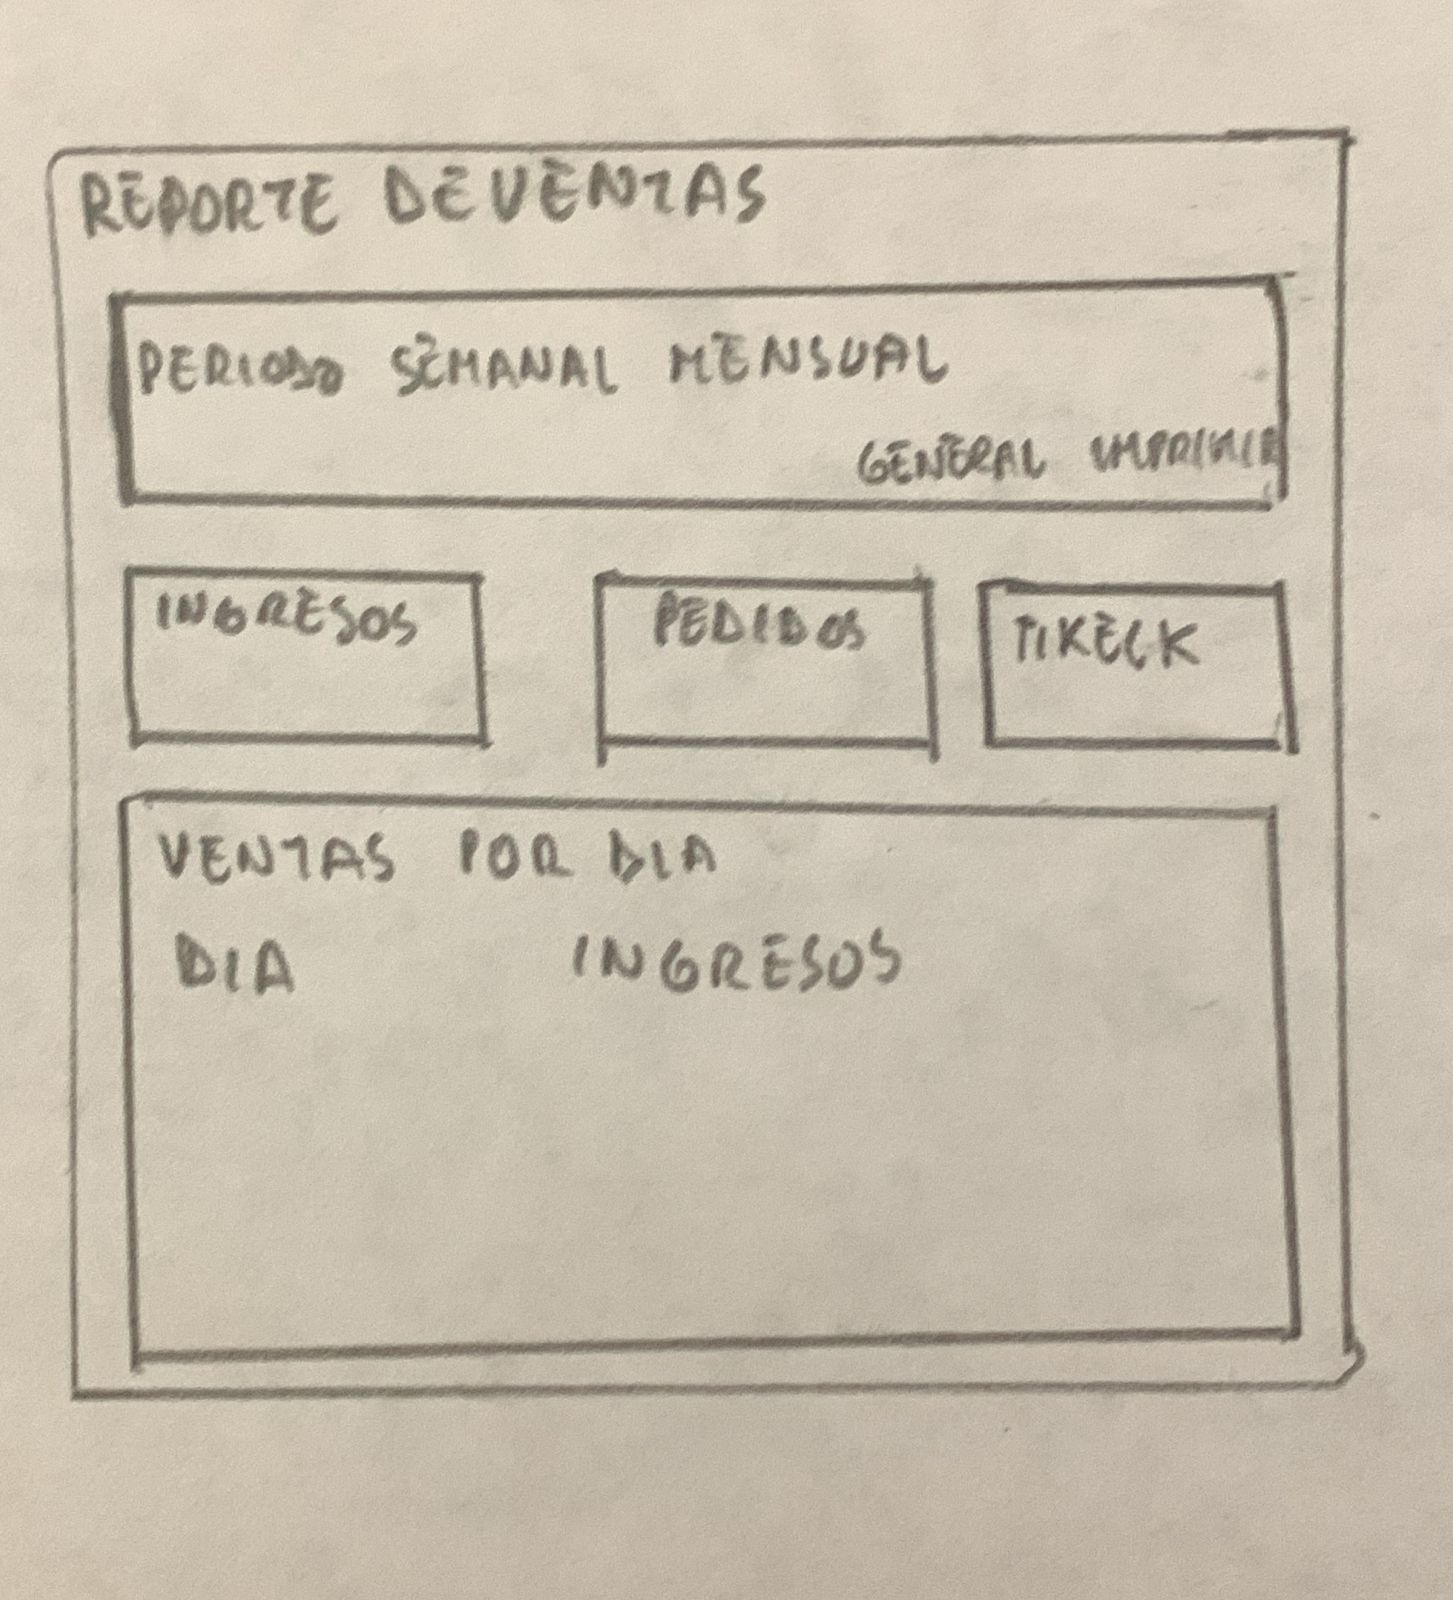 REPORTE DE VENTAS
PERIODO SEMANAL MENSUAL
GENERAL IMPRIMIR
INGRESOS
PEDIDOS
TIKECK
VENTAS POR DIA
DIA INGRESOS